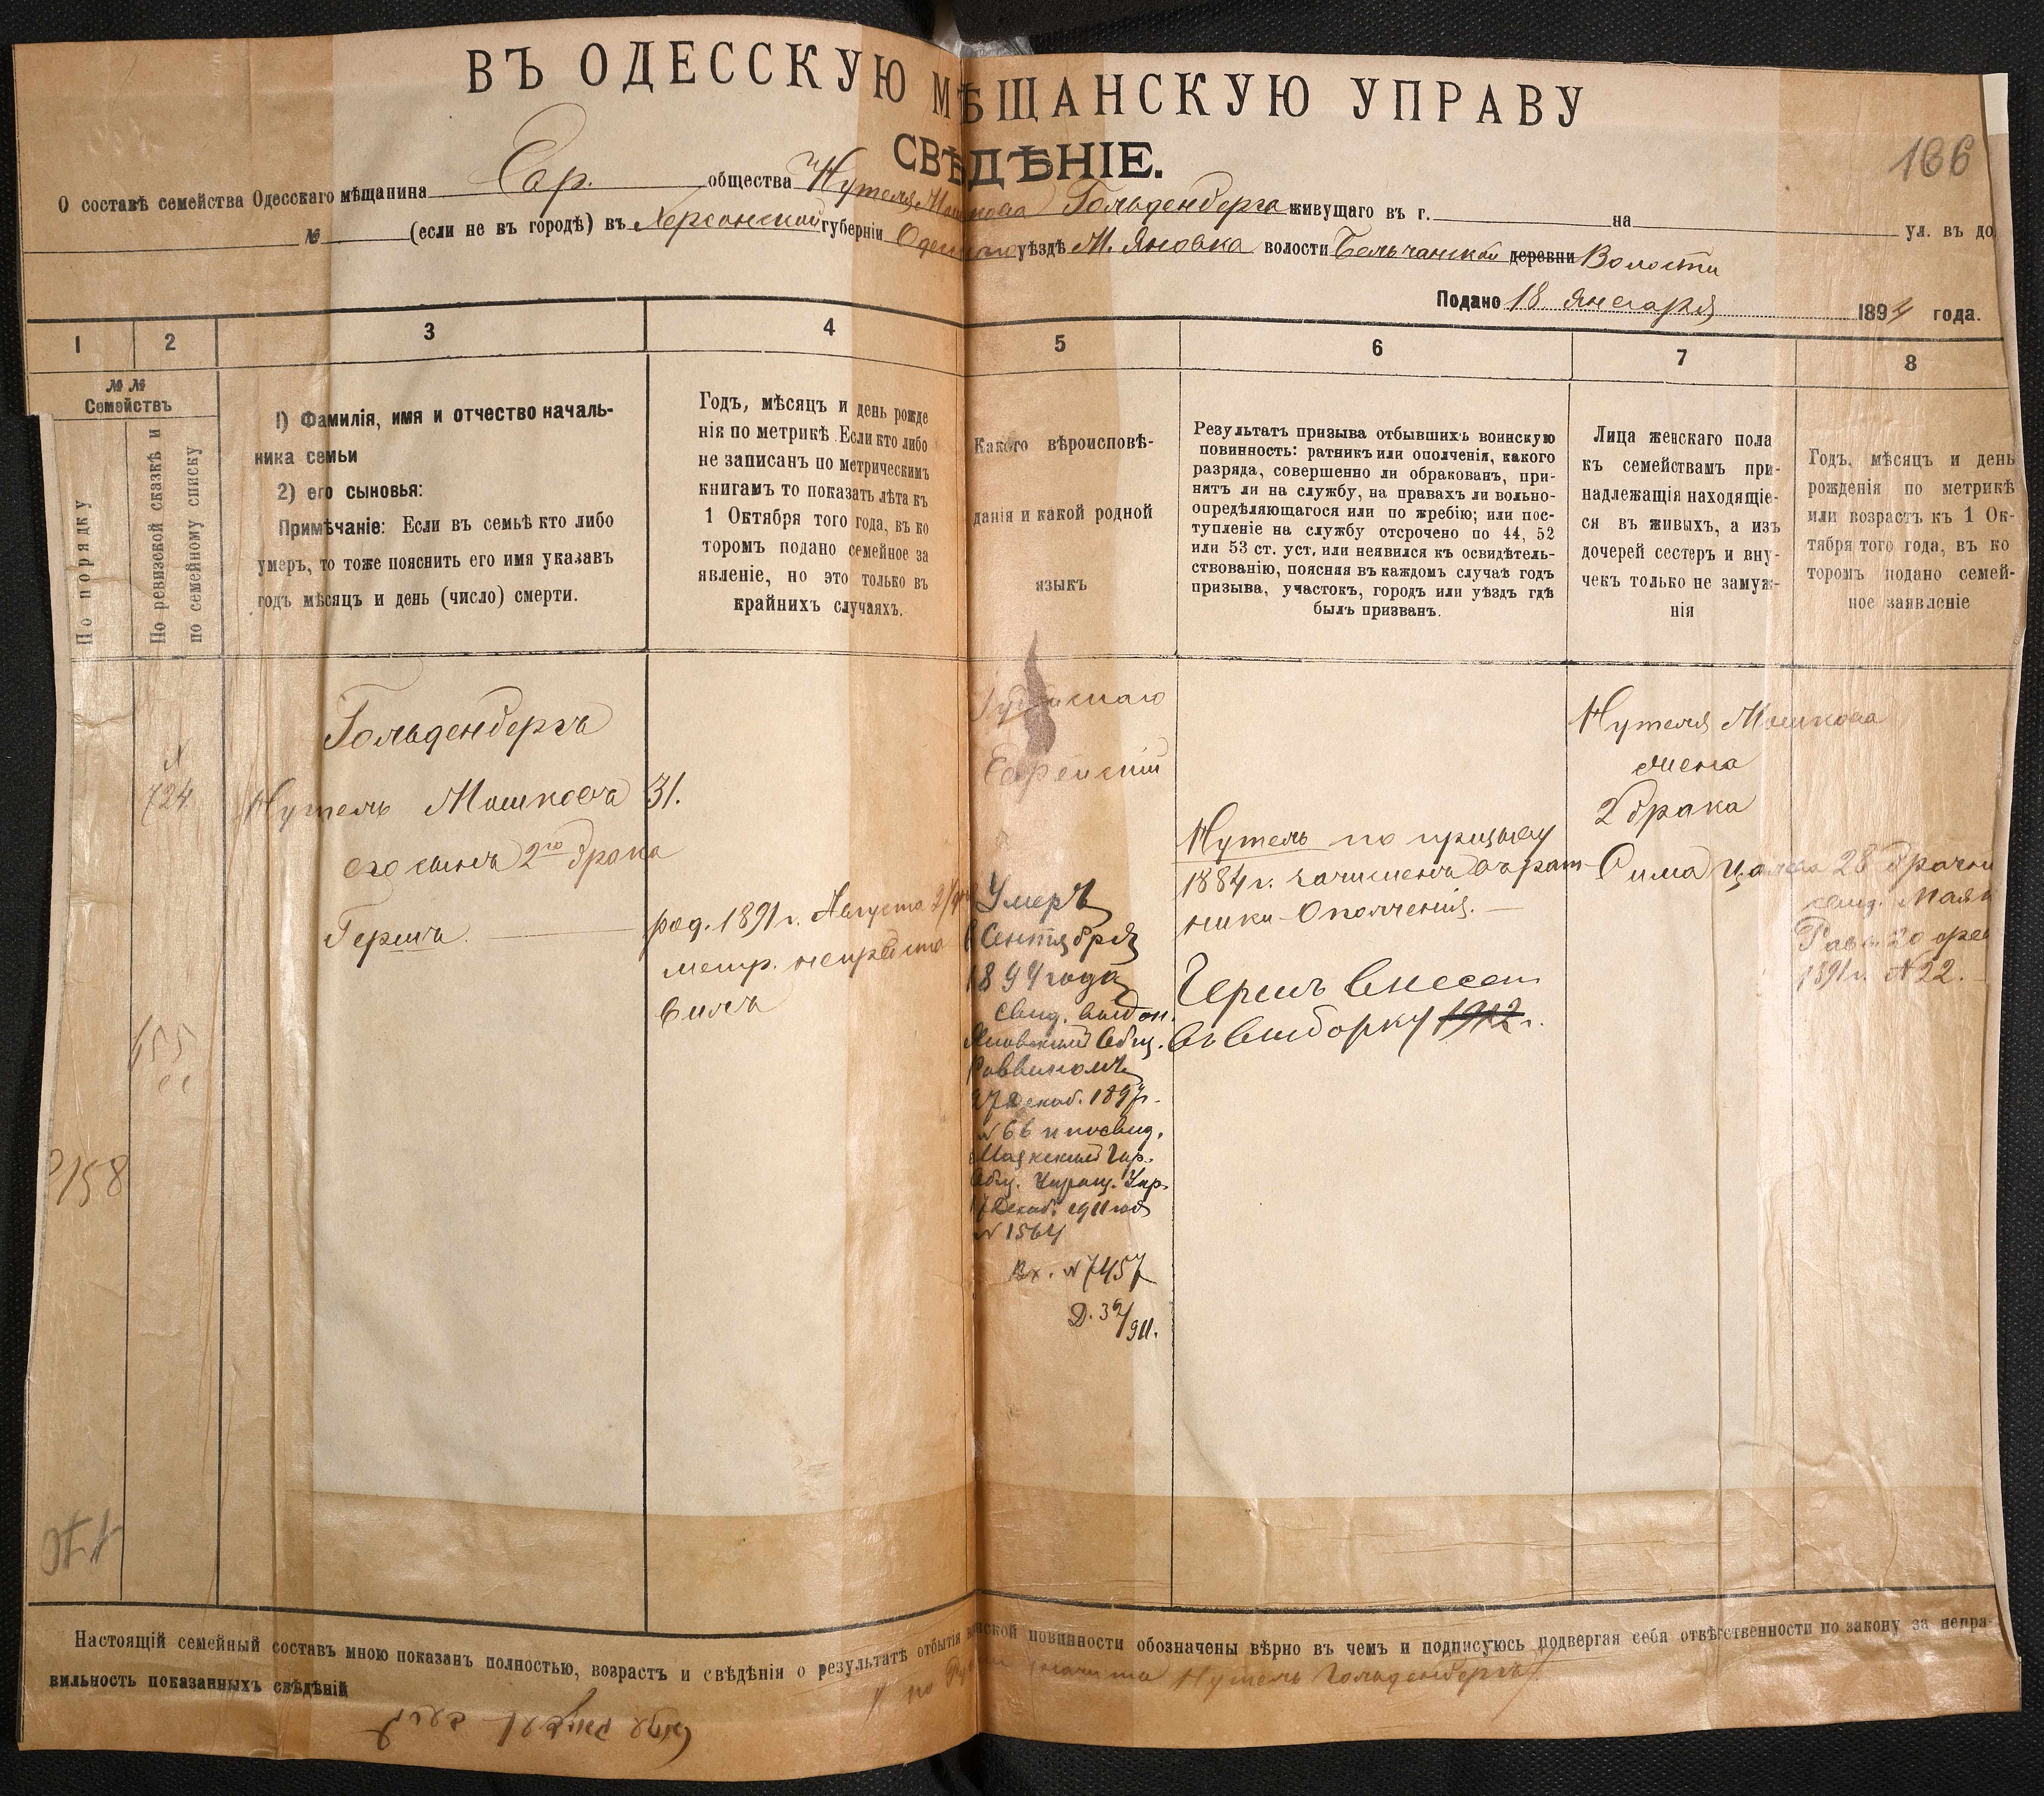 ВЪ ОДЕССКУЮ МѢЩАНСКУЮ УПРАВУ
СВѢДѢНІЕ.
166
О составѣ семейства Одесскаго мѣщанина Евр. общества Нутеля Мошкова Гольденберга живущаго въ г. на ул. въ до
№ (если не въ городѣ) въ Херсонской губерніи Одесскаго уѣздѣ М. Яновка волости Бельчанской деревни Волости
Подано 18 Января 1894 года.
1 2 3 4 5 6 7 8
№ №
Семействъ
По порядку
По ревизской сказкѣ и
по семейному списку
1) Фамилія, имя и отчество началь-
ника семьи
2) его сыновья:
Примѣчаніе: Если въ семьѣ кто либо
умеръ, то тоже пояснить его имя указавъ
годъ мѣсяцъ и день (число) смерти.
Годъ, мѣсяцъ и день рожде
нія по метрикѣ. Если кто либо
не записанъ по метрическимъ
книгамъ то показать лѣта къ
1 Октября того года, въ ко
торомъ подано семейное за
явленіе, но это только въ
крайнихъ случаяхъ.
Какого вѣроисповѣ-
данія и какой родной
языкъ
Результатъ призыва отбывшихъ воинскую
повинность: ратникъ или ополченія, какого
разряда, совершенно ли обракованъ, при-
нятъ ли на службу, на правахъ ли вольно-
опредѣляющагося или по жребію; или пос-
тупленіе на службу отсрочено по 44, 52
или 53 ст. уст. или неявился къ освидѣтель-
ствованію, поясняя въ каждомъ случаѣ годъ
призыва, участокъ, городъ или уѣздъ гдѣ
былъ призванъ.
Лица женскаго пола
къ семействамъ при-
надлежащія находящіе-
ся въ живыхъ, а изъ
дочерей сестеръ и вну-
чекъ только не замуж-
нія
Годъ, мѣсяцъ и день
рожденія по метрикѣ
или возрастъ къ 1 Ок-
тября того года, въ ко
торомъ подано семей-
ное заявленіе
724
155
2158
Гольденбергъ
Нутель Мошковъ 31.
его сынъ 2го брака
Гершъ.
род. 1891 г. Августа
метр. непредста
вилъ
Іудейскаго
Еврейскій
Умеръ
Сентября
1894 года
Свид. выдан.
Яновский Общ.
Раввиномъ
27 Декаб. 1897 г.
№ 66 и по свид.
Маякский Гор.
Общ. Управ. Упр.
17 Декаб. 1911 год
№ 1564
Вх. № 7457
Д. 36/911.
Нутель по призыву
1884 г. зачисленъ въ рат-
ники Ополченія.
Гершъ внесен
въ выборку 1912 г.
Нутеля Мошкова
жена
2 брака
Сима 28 брачн
свид. Маяк
Рав. 20 фев
1891 г. № 22.
Настоящій семейный составъ мною показанъ полностью, возрастъ и свѣдѣнія о результатѣ отбытія воинской повинности обозначены вѣрно въ чемъ и подписуюсь подвергая себя отвѣтственности по закону за непра-
вильность показанныхъ свѣдѣній
Нутель Гольденбергъ